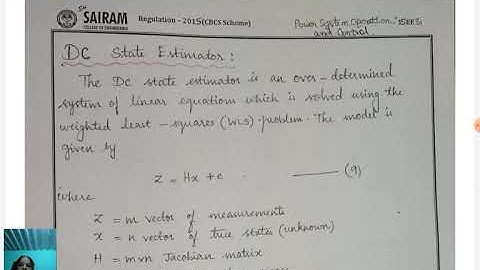 SAIRAM
COLLEGE OF ENGINEERING
Regulation - 2015(CBCS Scheme)
Power System Operation
and Control
DC State Estimator:
The DC state estimator is an over-determined
system of linear equations which is solved using the
weighted least-squares (WLS) problem. The model is
given by
Z = Hx + e (9)
where
Z = m vector of measurements
X = n vector of true states (unknown)
H = m×n Jacobian matrix